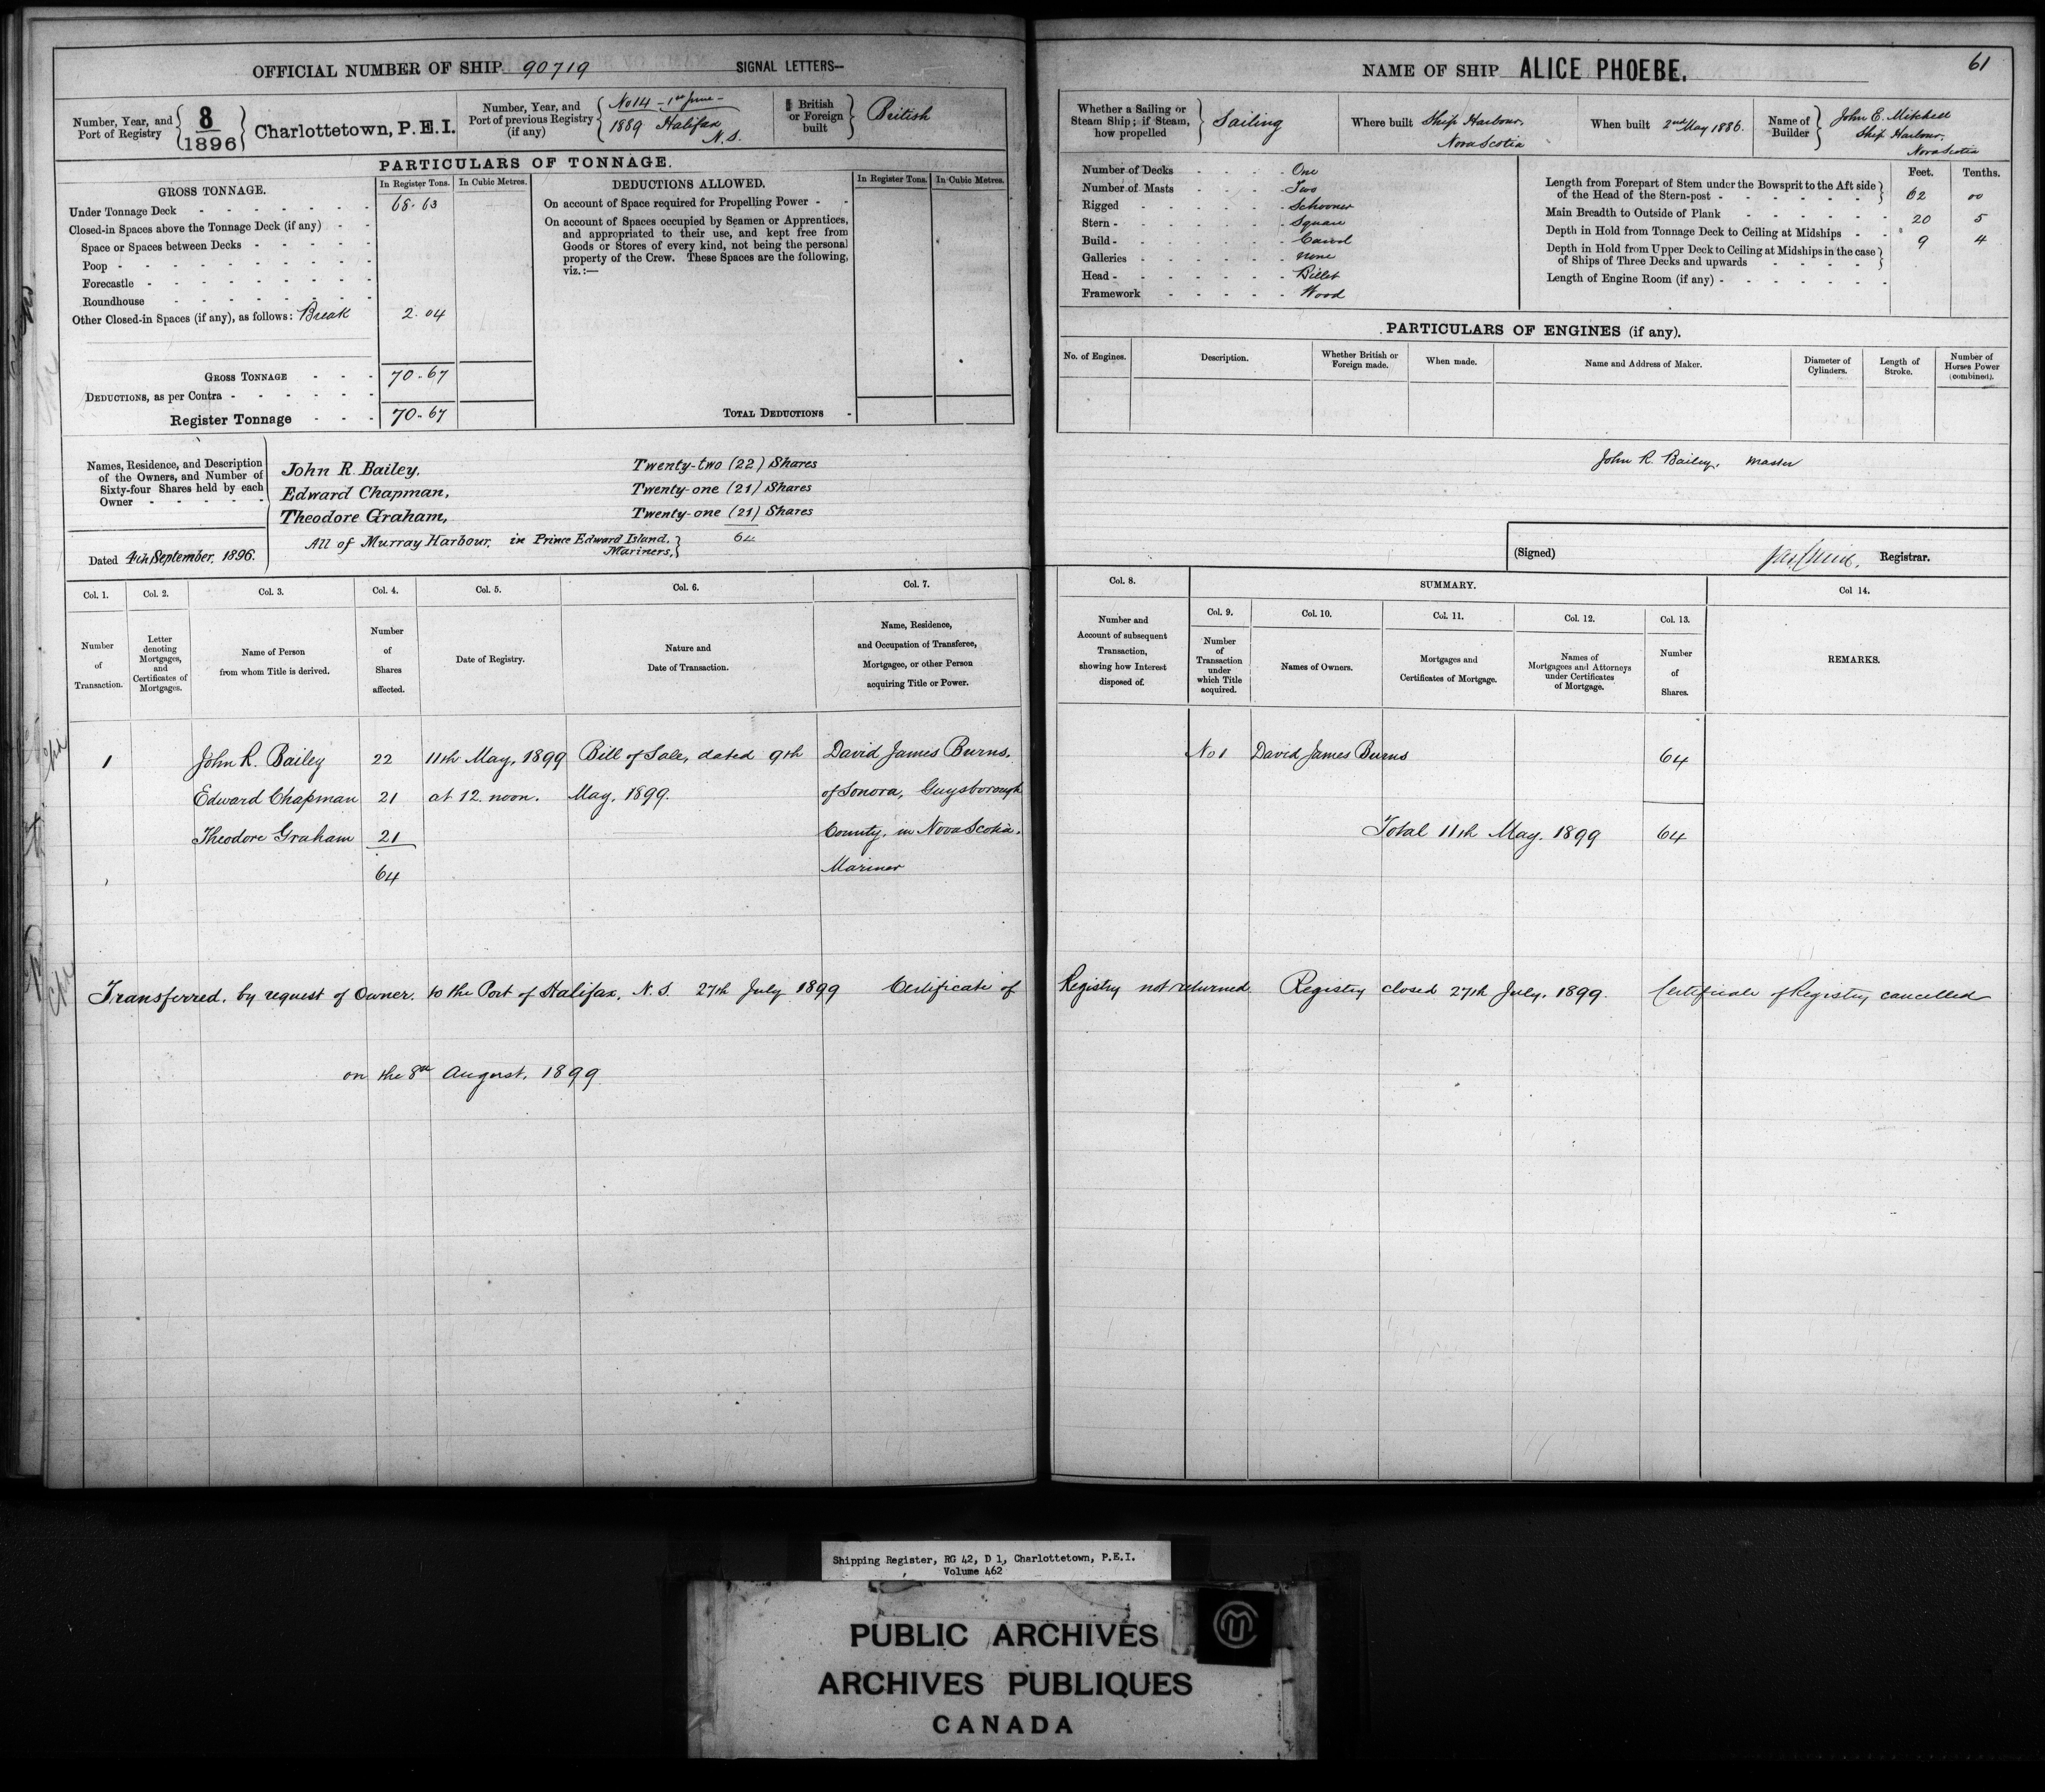 OFFICIAL NUMBER OF SHIP 90719 SIGNAL LETTERS—
Number, Year, and Port of Registry
8
1896
Charlottetown, P.E.I.
Number, Year, and Port of previous Registry (if any)
No 14 - 1st June -
1889 Halifax
N.S.
British or Foreign built
British
PARTICULARS OF TONNAGE.
GROSS TONNAGE.
In Register Tons. In Cubic Metres.
DEDUCTIONS ALLOWED.
In Register Tons. In Cubic Metres.
Under Tonnage Deck 68.63
Closed-in Spaces above the Tonnage Deck (if any)
Space or Spaces between Decks
Poop
Forecastle
Roundhouse
Other Closed-in Spaces (if any), as follows: Break 2.04
GROSS TONNAGE 70.67
DEDUCTIONS, as per Contra
Register Tonnage 70.67
On account of Space required for Propelling Power
On account of Spaces occupied by Seamen or Apprentices,
and appropriated to their use, and kept free from
Goods or Stores of every kind, not being the personal
property of the Crew. These Spaces are the following,
viz.:—
TOTAL DEDUCTIONS
Names, Residence, and Description
of the Owners, and Number of
Sixty-four Shares held by each
Owner
John R. Bailey, Twenty-two (22) Shares
Edward Chapman, Twenty-one (21) Shares
Theodore Graham, Twenty-one (21) Shares
All of Murray Harbour, in Prince Edward Island, 64
Mariners,
Dated 4th September, 1896.
Col. 1. Col. 2. Col. 3. Col. 4. Col. 5. Col. 6. Col. 7.
Number of Transaction.
Letter denoting Mortgages, and Certificates of Mortgages.
Name of Person from whom Title is derived.
Number of Shares affected.
Date of Registry.
Nature and Date of Transaction.
Name, Residence, and Occupation of Transferee, Mortgagee, or other Person acquiring Title or Power.
1 John R. Bailey 22 11th May, 1899 Bill of Sale, dated 9th David James Burns,
Edward Chapman 21 at 12 noon. May, 1899. of Sonora, Guysborough
Theodore Graham 21 County, in Nova Scotia.
64 Mariner
Transferred, by request of Owner, to the Port of Halifax, N.S. 27th July 1899 Certificate of
on the 8th August, 1899
61
NAME OF SHIP ALICE PHOEBE.
Whether a Sailing or Steam Ship; if Steam, how propelled
Sailing
Where built Ship Harbour, Nova Scotia
When built 2nd May 1886.
Name of Builder
John E. Mitchell
Ship Harbour,
Nova Scotia
Number of Decks One
Number of Masts Two
Rigged Schooner
Stern Square
Build Carvel
Galleries none
Head Billet
Framework Wood
Feet. Tenths.
Length from Forepart of Stem under the Bowsprit to the Aft side
of the Head of the Stern-post 62 00
Main Breadth to Outside of Plank 20 5
Depth in Hold from Tonnage Deck to Ceiling at Midships 9 4
Depth in Hold from Upper Deck to Ceiling at Midships in the case
of Ships of Three Decks and upwards
Length of Engine Room (if any)
PARTICULARS OF ENGINES (if any).
No. of Engines.
Description.
Whether British or Foreign made.
When made.
Name and Address of Maker.
Diameter of Cylinders.
Length of Stroke.
Number of Horses Power (combined).
John R. Bailey, Master
(Signed) Registrar.
Col. 8.
SUMMARY.
Col 14.
Col. 9. Col. 10. Col. 11. Col. 12. Col. 13.
Number and Account of subsequent Transaction, showing how Interest disposed of.
Number of Transaction under which Title acquired.
Names of Owners.
Mortgages and Certificates of Mortgage.
Names of Mortgagees and Attorneys under Certificates of Mortgage.
Number of Shares.
REMARKS.
No 1 David James Burns 64
Total 11th May, 1899 64
Registry not returned. Registry closed 27th July, 1899. Certificate of Registry cancelled
Shipping Register, RG 42, D 1, Charlottetown, P.E.I.
Volume 462
PUBLIC ARCHIVES
ARCHIVES PUBLIQUES
CANADA